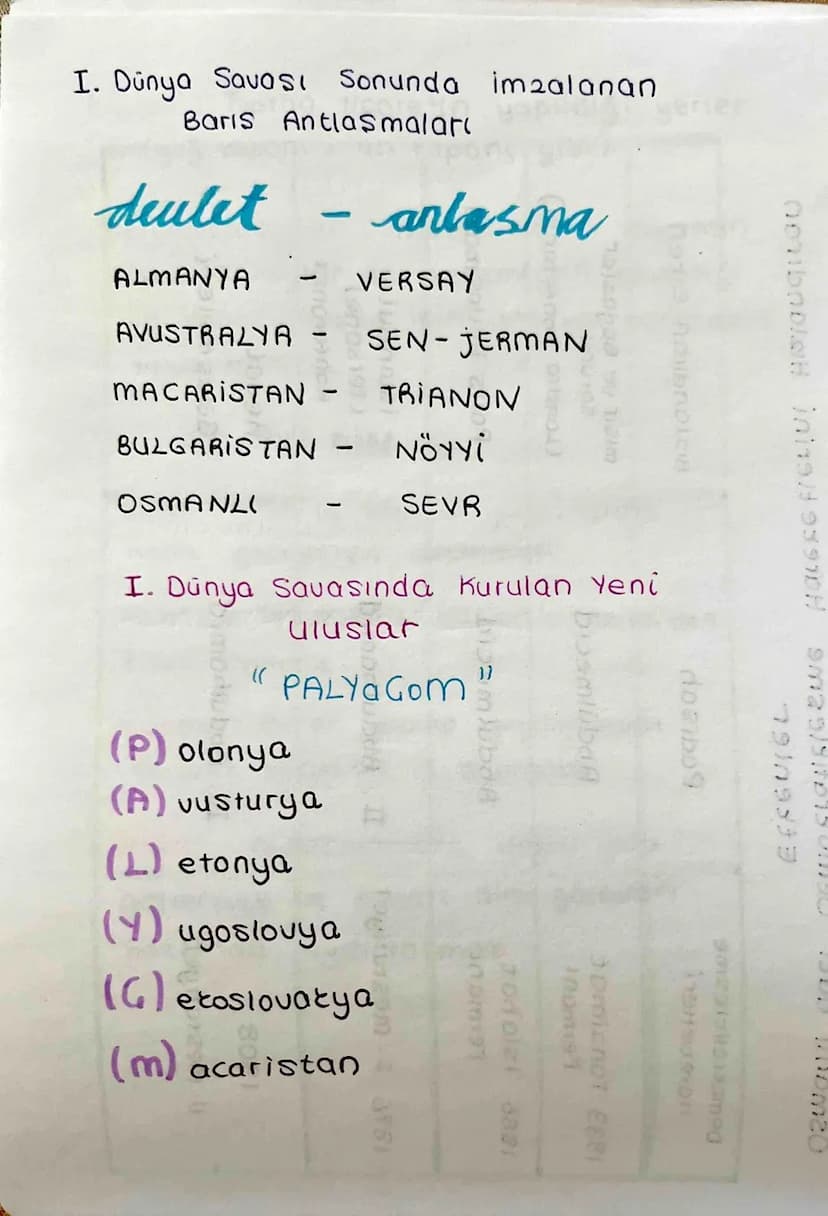 I. Dünya Savası Sonunda imzalanan
Barıs Antlasmaları
devlet - anlasma
ALMANYA - VERSAY
AVUSTRALYA - SEN-JERMAN
MACARİSTAN - TRİANON
BULGARİSTAN - NÖYYİ
OSMANLI - SEVR
I. Dünya Savasında Kurulan Yeni
Uluslar
"PALYaCom"
(P) olonya
(A) vusturya
(L) etonya
(Y) ugoslovya
(C) ekoslovakya
(m) acaristan